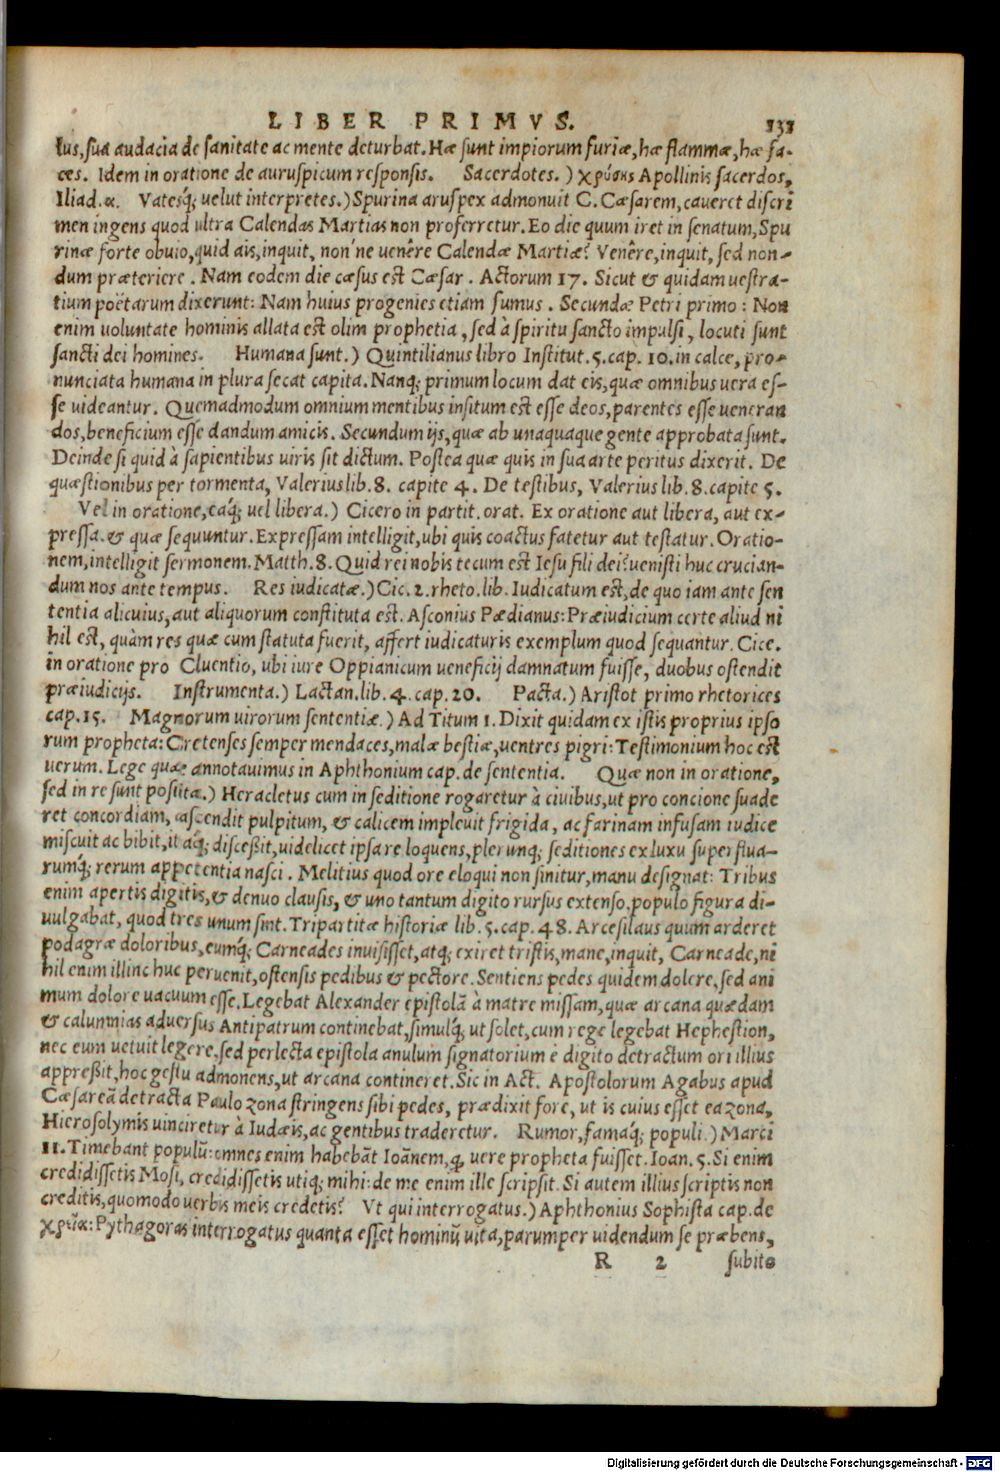 LIBER PRIMVS. 131
lus, sua audacia de sanitate ac mente deturbat. Hæ sunt impiorum furiæ, hæ flammæ, hæ fa-
ces. Idem in oratione de auruspicum responsis. Sacerdotes.) χρύσης Apollinis sacerdos,
Iliad.α. Vatesq́; uelut interpretes.) Spurina aruspex admonuit C. Cæsarem, caueret discri
men ingens quod ultra Calendas Martias non proferretur. Eo die quum iret in senatum, Spu
rinæ forte obuio, quid ais, inquit, non'ne uenêre Calendæ Martiæ? Venêre, inquit, sed non-
dum præteriere. Nam eodem die cæsus est Cæsar. Actorum 17. Sicut & quidam uestra-
tium poëtarum dixerunt: Nam huius progenies etiam sumus. Secundæ Petri primo: Non
enim uoluntate hominis allata est olim prophetia, sed à spiritu sancto impulsi, locuti sunt
sancti dei homines. Humana sunt.) Quintilianus libro Institut. 5. cap. 10. in calce, pro-
nunciata humana in plura secat capita. Nanq; primum locum dat eis, quæ omnibus uera es-
se uideantur. Quemadmodum omnium mentibus insitum est esse deos, parentes esse ueneran
dos, beneficium esse dandum amicis. Secundum ijs, quæ ab unaquaque gente approbata sunt.
Deinde si quid à sapientibus uiris sit dictum. Postea quæ quis in sua arte peritus dixerit. De
quæstionibus per tormenta, Valerius lib. 8. capite 4. De testibus, Valerius lib. 8. capite 5.
Vel in oratione, eaq́; uel libera.) Cicero in partit. orat. Ex oratione aut libera, aut ex-
pressa. & quæ sequuntur. Expressam intelligit, ubi quis coactus fatetur aut testatur. Oratio-
nem, intelligit sermonem. Matth. 8. Quid rei nobis tecum est Iesu fili dei? uenisti huc crucian-
dum nos ante tempus. Res iudicatæ.) Cic. 2. rheto. lib. Iudicatum est, de quo iam ante sen
tentia alicuius, aut aliquorum constituta est. Asconius Pædianus: Præiudicium certe aliud ni
hil est, quàm res quæ cum statuta fuerit, affert iudicaturis exemplum quod sequantur. Cice.
in oratione pro Cluentio, ubi iure Oppianicum ueneficij damnatum fuisse, duobus ostendit
præiudicijs. Instrumenta.) Lactan. lib. 4. cap. 20. Pacta.) Aristot primo rhetorices
cap. 15. Magnorum uirorum sententiæ.) Ad Titum 1. Dixit quidam ex istis proprius ipso
rum propheta: Cretenses semper mendaces, malæ bestiæ, uentres pigri: Testimonium hoc est
uerum. Lege quæ annotauimus in Aphthonium cap. de sententia. Quæ non in oratione,
sed in re sunt positæ.) Heracletus cum in seditione rogaretur à ciuibus, ut pro concione suade
ret concordiam, ascendit pulpitum, & calicem impleuit frigida, ac farinam infusam iudice
miscuit ac bibit, itaq́; discessit, uidelicet ipsa re loquens, plerunq; seditiones ex luxu superflua-
rumq́; rerum appetentia nasci. Melitius quod ore eloqui non sinitur, manu designat: Tribus
enim apertis digitis, & denuo clausis, & uno tantum digito rursus extenso, populo figura di-
uulgabat, quod tres unum sint. Tripartitæ historiæ lib. 5. cap. 48. Arcesilaus quum arderet
podagræ doloribus, eumq́; Carneades inuisisset, atq; exiret tristis, mane, inquit, Carneade, ni
hil enim illinc huc peruenit, ostensis pedibus & pectore. Sentiens pedes quidem dolere, sed ani
mum dolore uacuum esse. Legebat Alexander epistolã à matre missam, quæ arcana quædam
& calumnias aduersus Antipatrum continebat, simulq́; ut solet, cum rege legebat Hephestion,
nec eum uetuit legere, sed perlecta epistola anulum signatorium è digito detractum ori illius
appressit, hoc gestu admonens, ut arcana contineret. Sic in Act. Apostolorum Agabus apud
Cæsareã detracta Paulo zona stringens sibi pedes, prædixit fore, ut is cuius esset ea zona,
Hierosolymis uinciretur à Iudæis, ac gentibus traderetur. Rumor, famaq́; populi.) Marci
11. Timebant populũ: omnes enim habebãt Ioãnem, q̃ uere propheta fuisset. Ioan. 5. Si enim
credidissetis Mosi, credidissetis utiq; mihi: de me enim ille scripsit. Si autem illius scriptis non
creditis, quomodo uerbis meis credetis? Vt qui interrogatus.) Aphthonius Sophista cap. de
χρεία: Pythagoras interrogatus quanta esset hominũ uita, parumper uidendum se præbens,
R 2 subito
Digitalisierung gefördert durch die Deutsche Forschungsgemeinschaft - DFG